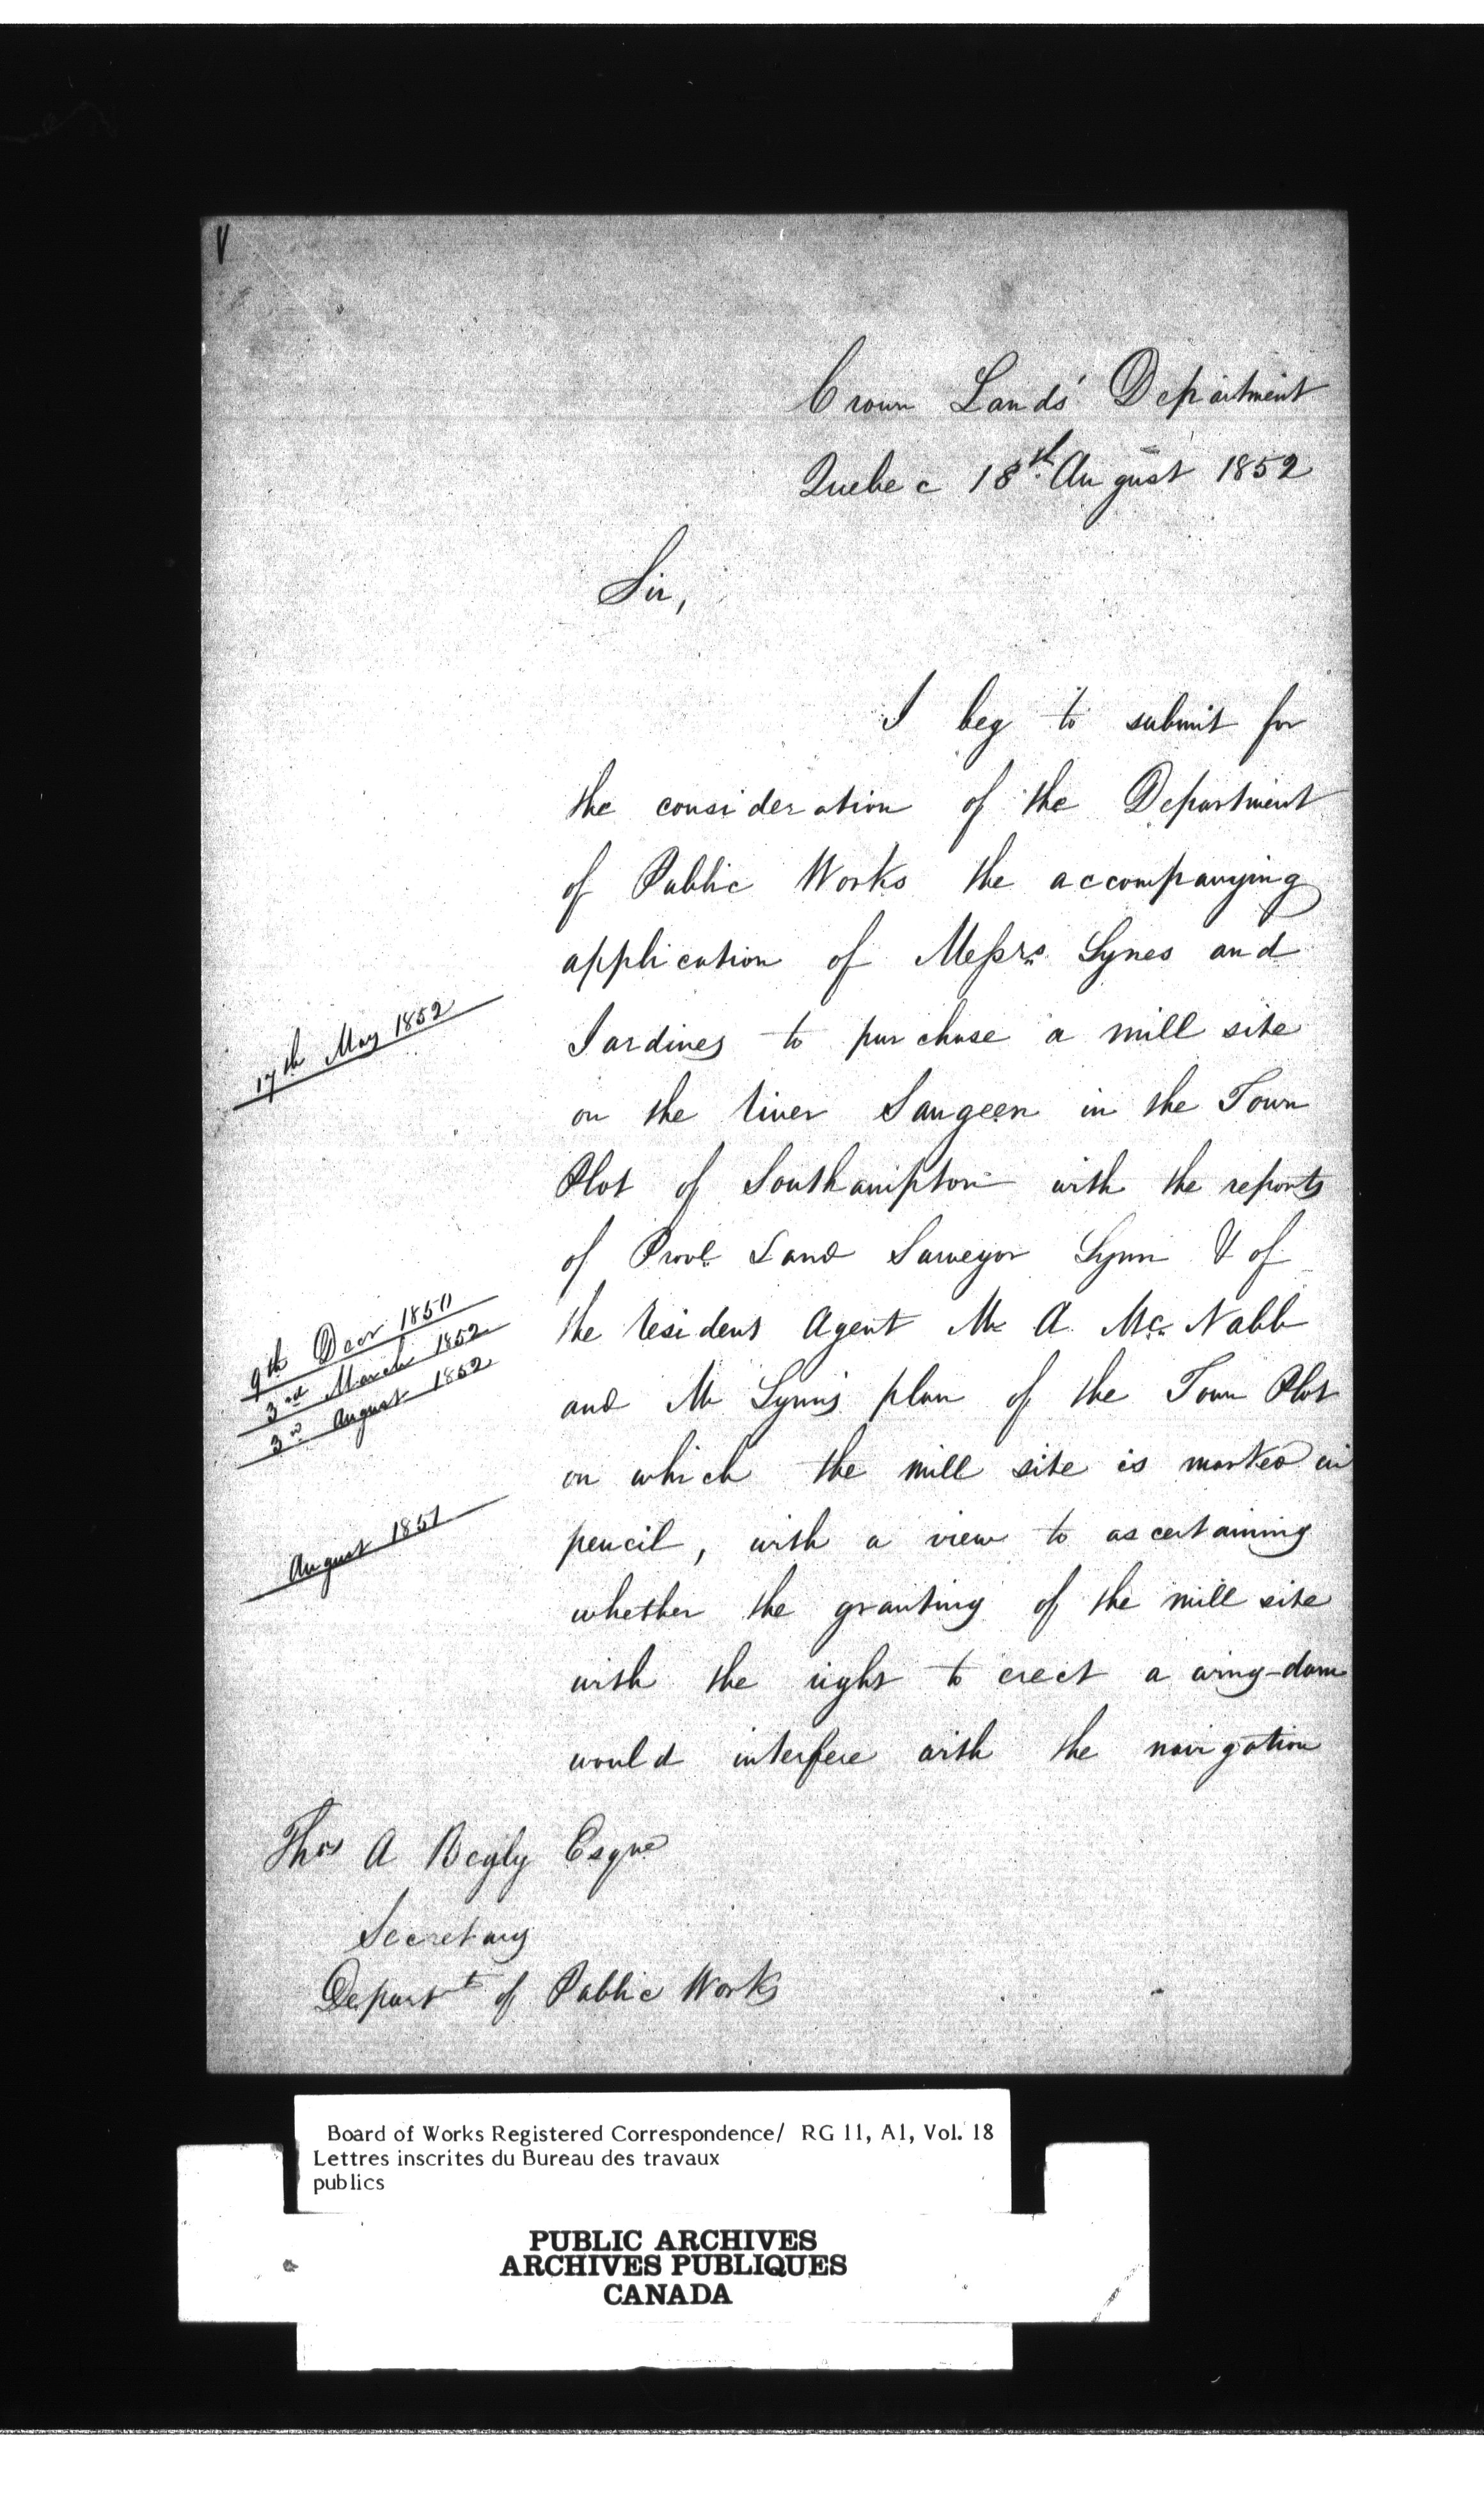 Crown Lands' Department
Quebec 18th August 1852
Sir,
I beg to submit for
the consideration of the Department
of Public Works the accompanying
application of Messrs Lynes and
17th May 1852
Jardines to purchase a mill site
on the river Saugeen in the Town
Plot of Southampton with the reports
of Provl Land Surveyor Lynn & of
9th Decr 1851
3rd March 1852
3rd August 1852
the resident Agent Mr A. McNabb
and Mr Lynn's plan of the Town Plot
on which the mill site is marked in
August 1851
pencil, with a view to ascertaining
whether the granting of the mill site
with the right to erect a wing-dam
would interfere with the navigation
Thos A Begly Esqre
Secretary
Departt of Public Works
Board of Works Registered Correspondence/ RG 11, A1, Vol. 18
Lettres inscrites du Bureau des travaux
publics
PUBLIC ARCHIVES
ARCHIVES PUBLIQUES
CANADA